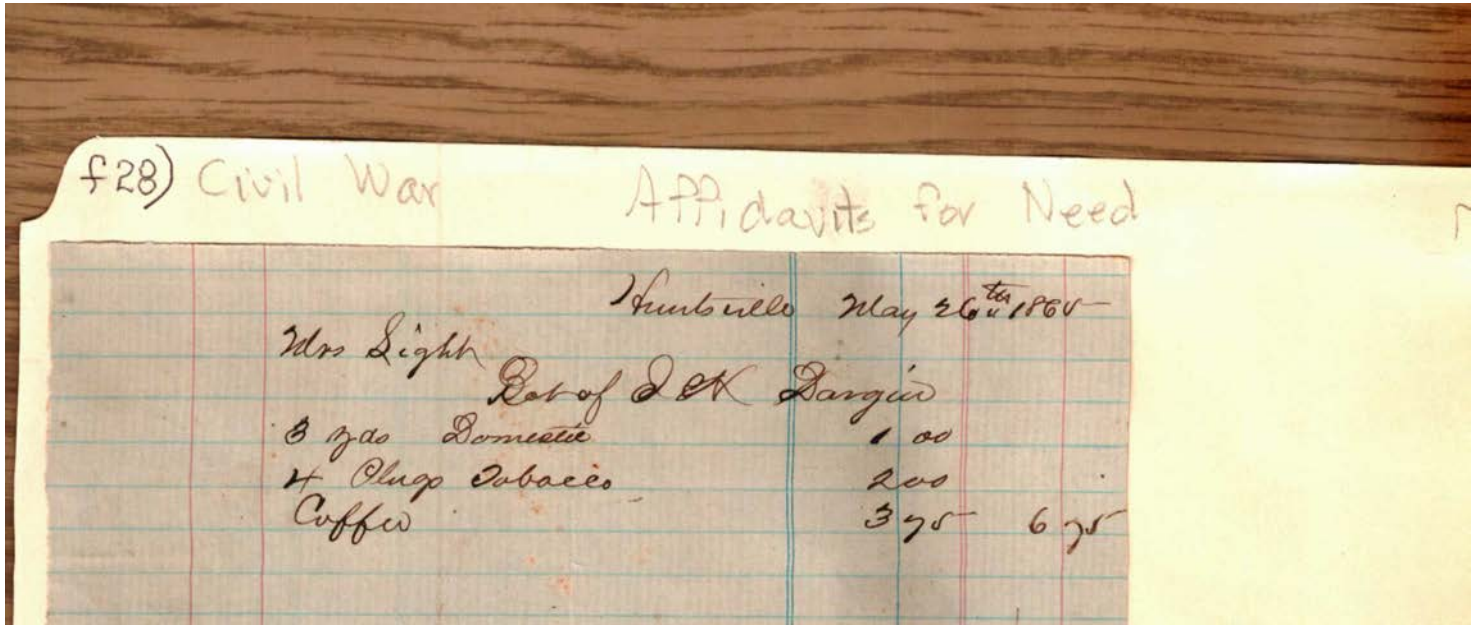 f28) Civil War Affidavits for Need
Huntsville May 26th 1865
Mrs Light
Bot of J K Dargin
3 yds Domestic 1 00
4 Plugs Tobacco 2 00
Coffee 3 75 6 75